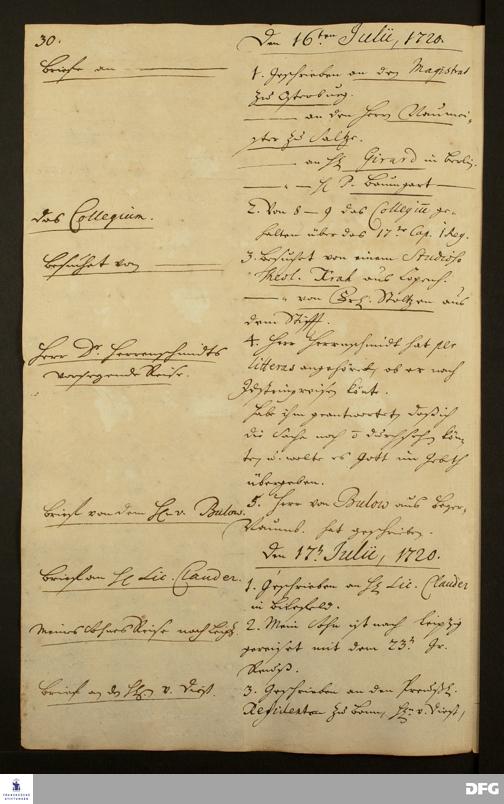 30.
Den 16ten Julii, 1720.
Briefe an
1. Geschrieben an den Magistrat
zu Osterburg.
an den Herrn Neumei-
ster zu Saltze.
an H. Girard in Berlin.
H. P. Baumgart
Das Collegium.
2. Von 8 – 9 das Collegium ge-
halten über das 17te Cap. 1 Reg.
Besuchet von
3. Besucht von einem Studioso
Theol. aus Copenh.
von Stoltzen aus
dem Stifft.
Herr Dr. Herrenschmidts
vorseyende Reise.
4. Herr Herrnschmidt hat per
litteras angefragt, ob er nach
reisen könte.
Habe ihm geantwortet, daß ich
die Sache noch durchsehen kön-
te, u. wolte es Gott im Gebeth
übergeben.
Brieff von dem H. v. Bulow.
5. Herr von Bulow aus
hat geschrieben.
Den 17t Julii, 1720.
Brieff an H. Lic. Clauder.
1. Geschrieben an H. Lic. Clauder
in Bilefeld.
Meines Sohnes Reise nach Leipz.
2. Mein Sohn ist nach Leipzig
gereiset mit dem 23t Gr.
Reuß.
Brieff an den H. v. Diest.
3. Geschrieben an den Preußl.
Residenten zu Bonn, Hn. v. Diest,
DFG